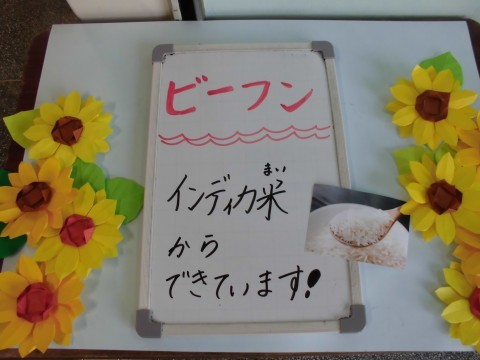 ビーフン
まい
インディカ米
から
できています!